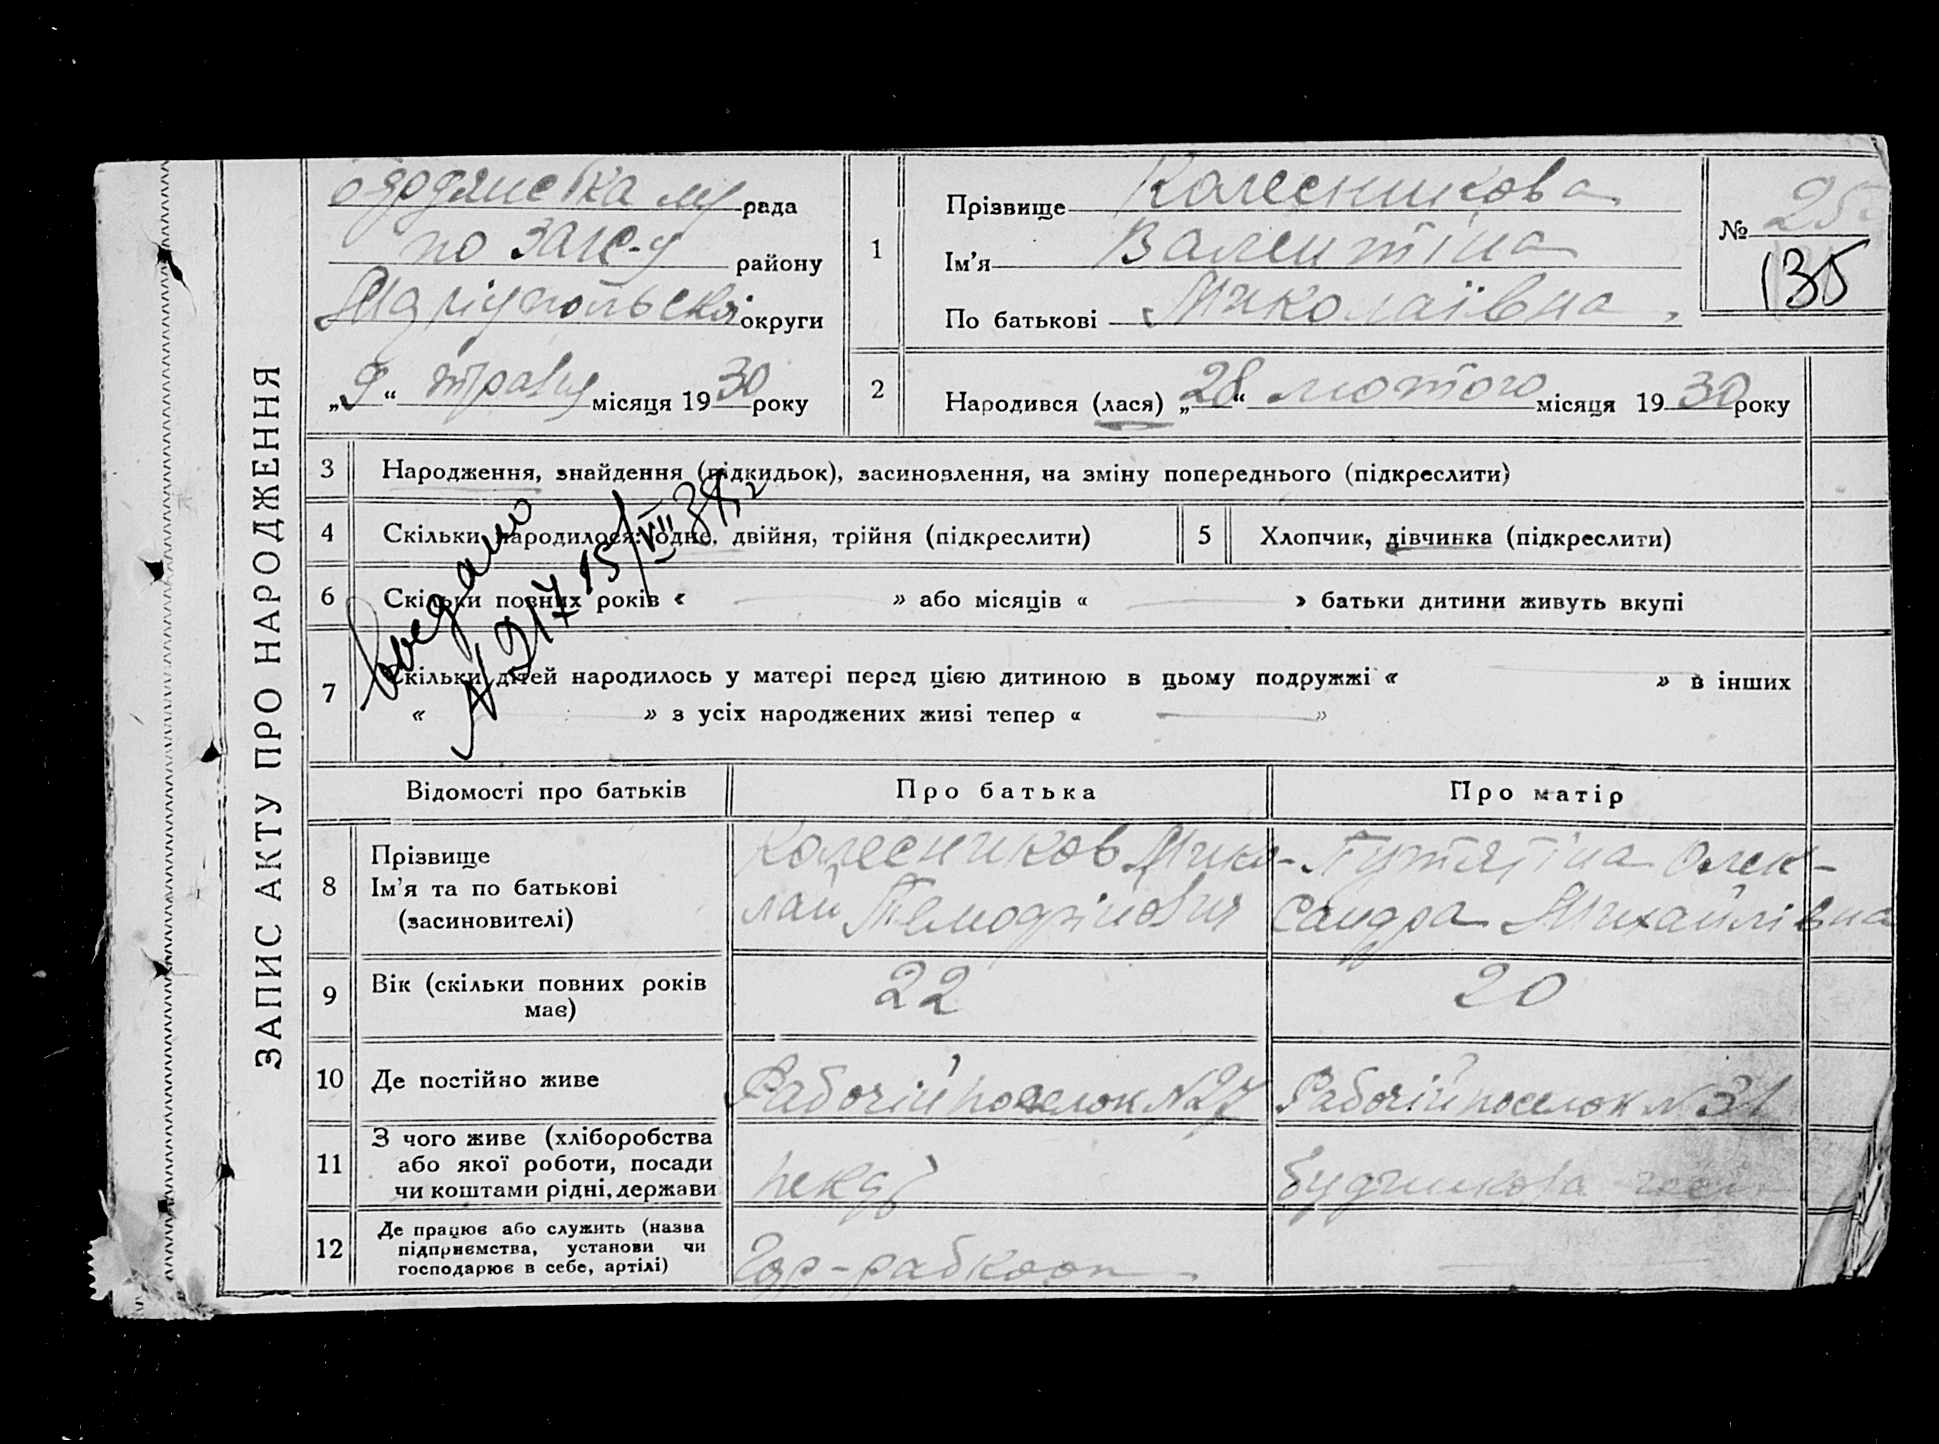 ЗАПИС АКТУ ПРО НАРОДЖЕННЯ
рада
по Загс-у району
Маріупольскої округи
„9“ травня місяця 1930 року
1
Прізвище Колесникова
Ім'я Валентіна
По батькові Миколаївна
№ 25
135
2
Народився (лася) „28“ лютого місяця 1930 року
3 Народження, знайдення (підкидьок), засиновлення, на зміну попереднього (підкреслити)
4 Скільки народилося: одне, двійня, трійня (підкреслити)
5 Хлопчик, дівчинка (підкреслити)
6 Скільки повних років « » або місяців « » батьки дитини живуть вкупі
7 Скільки дітей народилось у матері перед цією дитиною в цьому подружжі « » в інших
« » з усіх народжених живі тепер « »
217 15/VIII 38
Відомості про батьків Про батька Про матір
8 Прізвище
Ім'я та по батькові
(засиновителі)
Колесников Мико-
лай
Олек-
сандра Михайлівна
9 Вік (скільки повних років
має)
22 20
10 Де постійно живе Рабочій поселок №27 Рабочій поселок №31
11 З чого живе (хліборобства
або якої роботи, посади
чи коштами рідні, держави
пекарь
12 Де працює або служить (назва
підприємства, установи чи
господарює в себе, артілі)
Гор-рабкооп